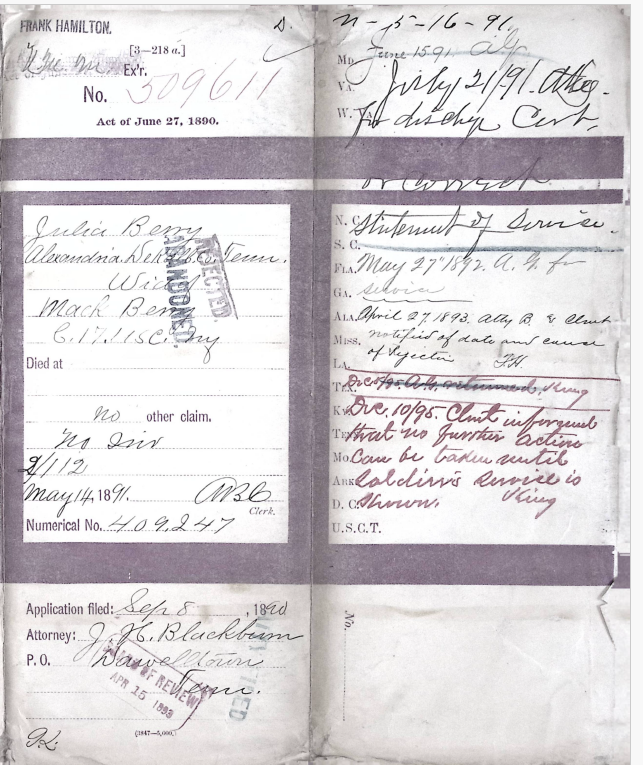 FRANK HAMILTON.
[3—218 a.]
Ex'r.
No. 509611
Act of June 27, 1890.
Julia Berry
Alexandria DeKalb Co. Tenn.
Widow
Mack Berry
REJECTED.
ABANDONED.
Died at
no other claim.
No Inv
May 14, 1891.
Clerk.
Numerical No. 409.247
Application filed: Sep 8, 1890
Attorney: J. H. Blackburn
P. O. Dowelltown
Tenn.
BOARD OF REVIEW
APR 15 1893
(3847—5,000.)
n-5-16-91.
Md. June 15 91. A.G.
Va. July 21/91. Atty.
W. Va. for discharge Cert,
or correct
N. C. Statement of Service.
S. C.
Fla. May 27 1892. A. G. for
Ga. service
Ala. April 27, 1893. Atty B. & Clmt
Miss. notified of date and cause
of rejection F.H.
La.
Tex. A.G. returned. King
Ky. Dec. 10/95. Clmt informed
Te. that no further action
Mo. can be taken until
Ark. Soldier's service is
D. C. shown. King
U.S.C.T.
No.